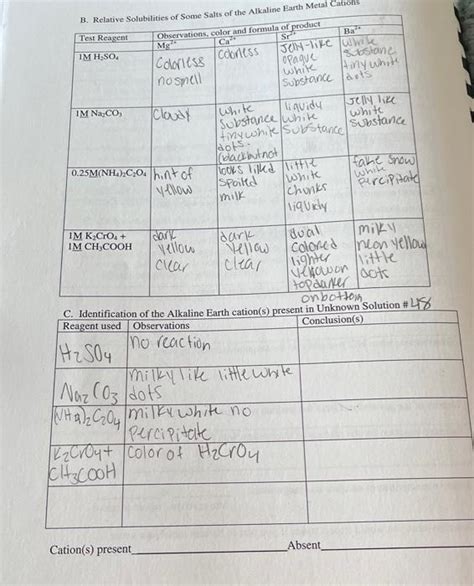 B. Relative Solubilities of Some Salts of the Alkaline Earth Metal Cations
Test Reagent
Observations, color and formula of product
Mg²⁺
Ca²⁺
Sr²⁺
Ba²⁺
1M H₂SO₄
Colorless
no smell
Colorless
Jelly-like
opaque
white
substance
white
substance
tiny white
dots
1M Na₂CO₃
Cloudy
white
substance
tiny white
dots.
liquidy
white
substance
Jelly like
white
substance
0.25M(NH₄)₂C₂O₄
hint of
yellow
looks
spoiled
milk
little
white
chunks
liquidy
fake snow
white
percipitate
1M K₂CrO₄ +
1M CH₃COOH
dark
yellow
clear
dark
yellow
clear
dual
colored
lighter
yellow on
top darker
on bottom
milky
neon yellow
little
dots
C. Identification of the Alkaline Earth cation(s) present in Unknown Solution #458
Reagent used
Observations
Conclusion(s)
H₂SO₄
no reaction
Na₂CO₃
milky like little white
dots
(NH₄)₂C₂O₄
milky white no
percipitate
K₂CrO₄+
CH₃COOH
color of H₂CrO₄
Cation(s) present
Absent